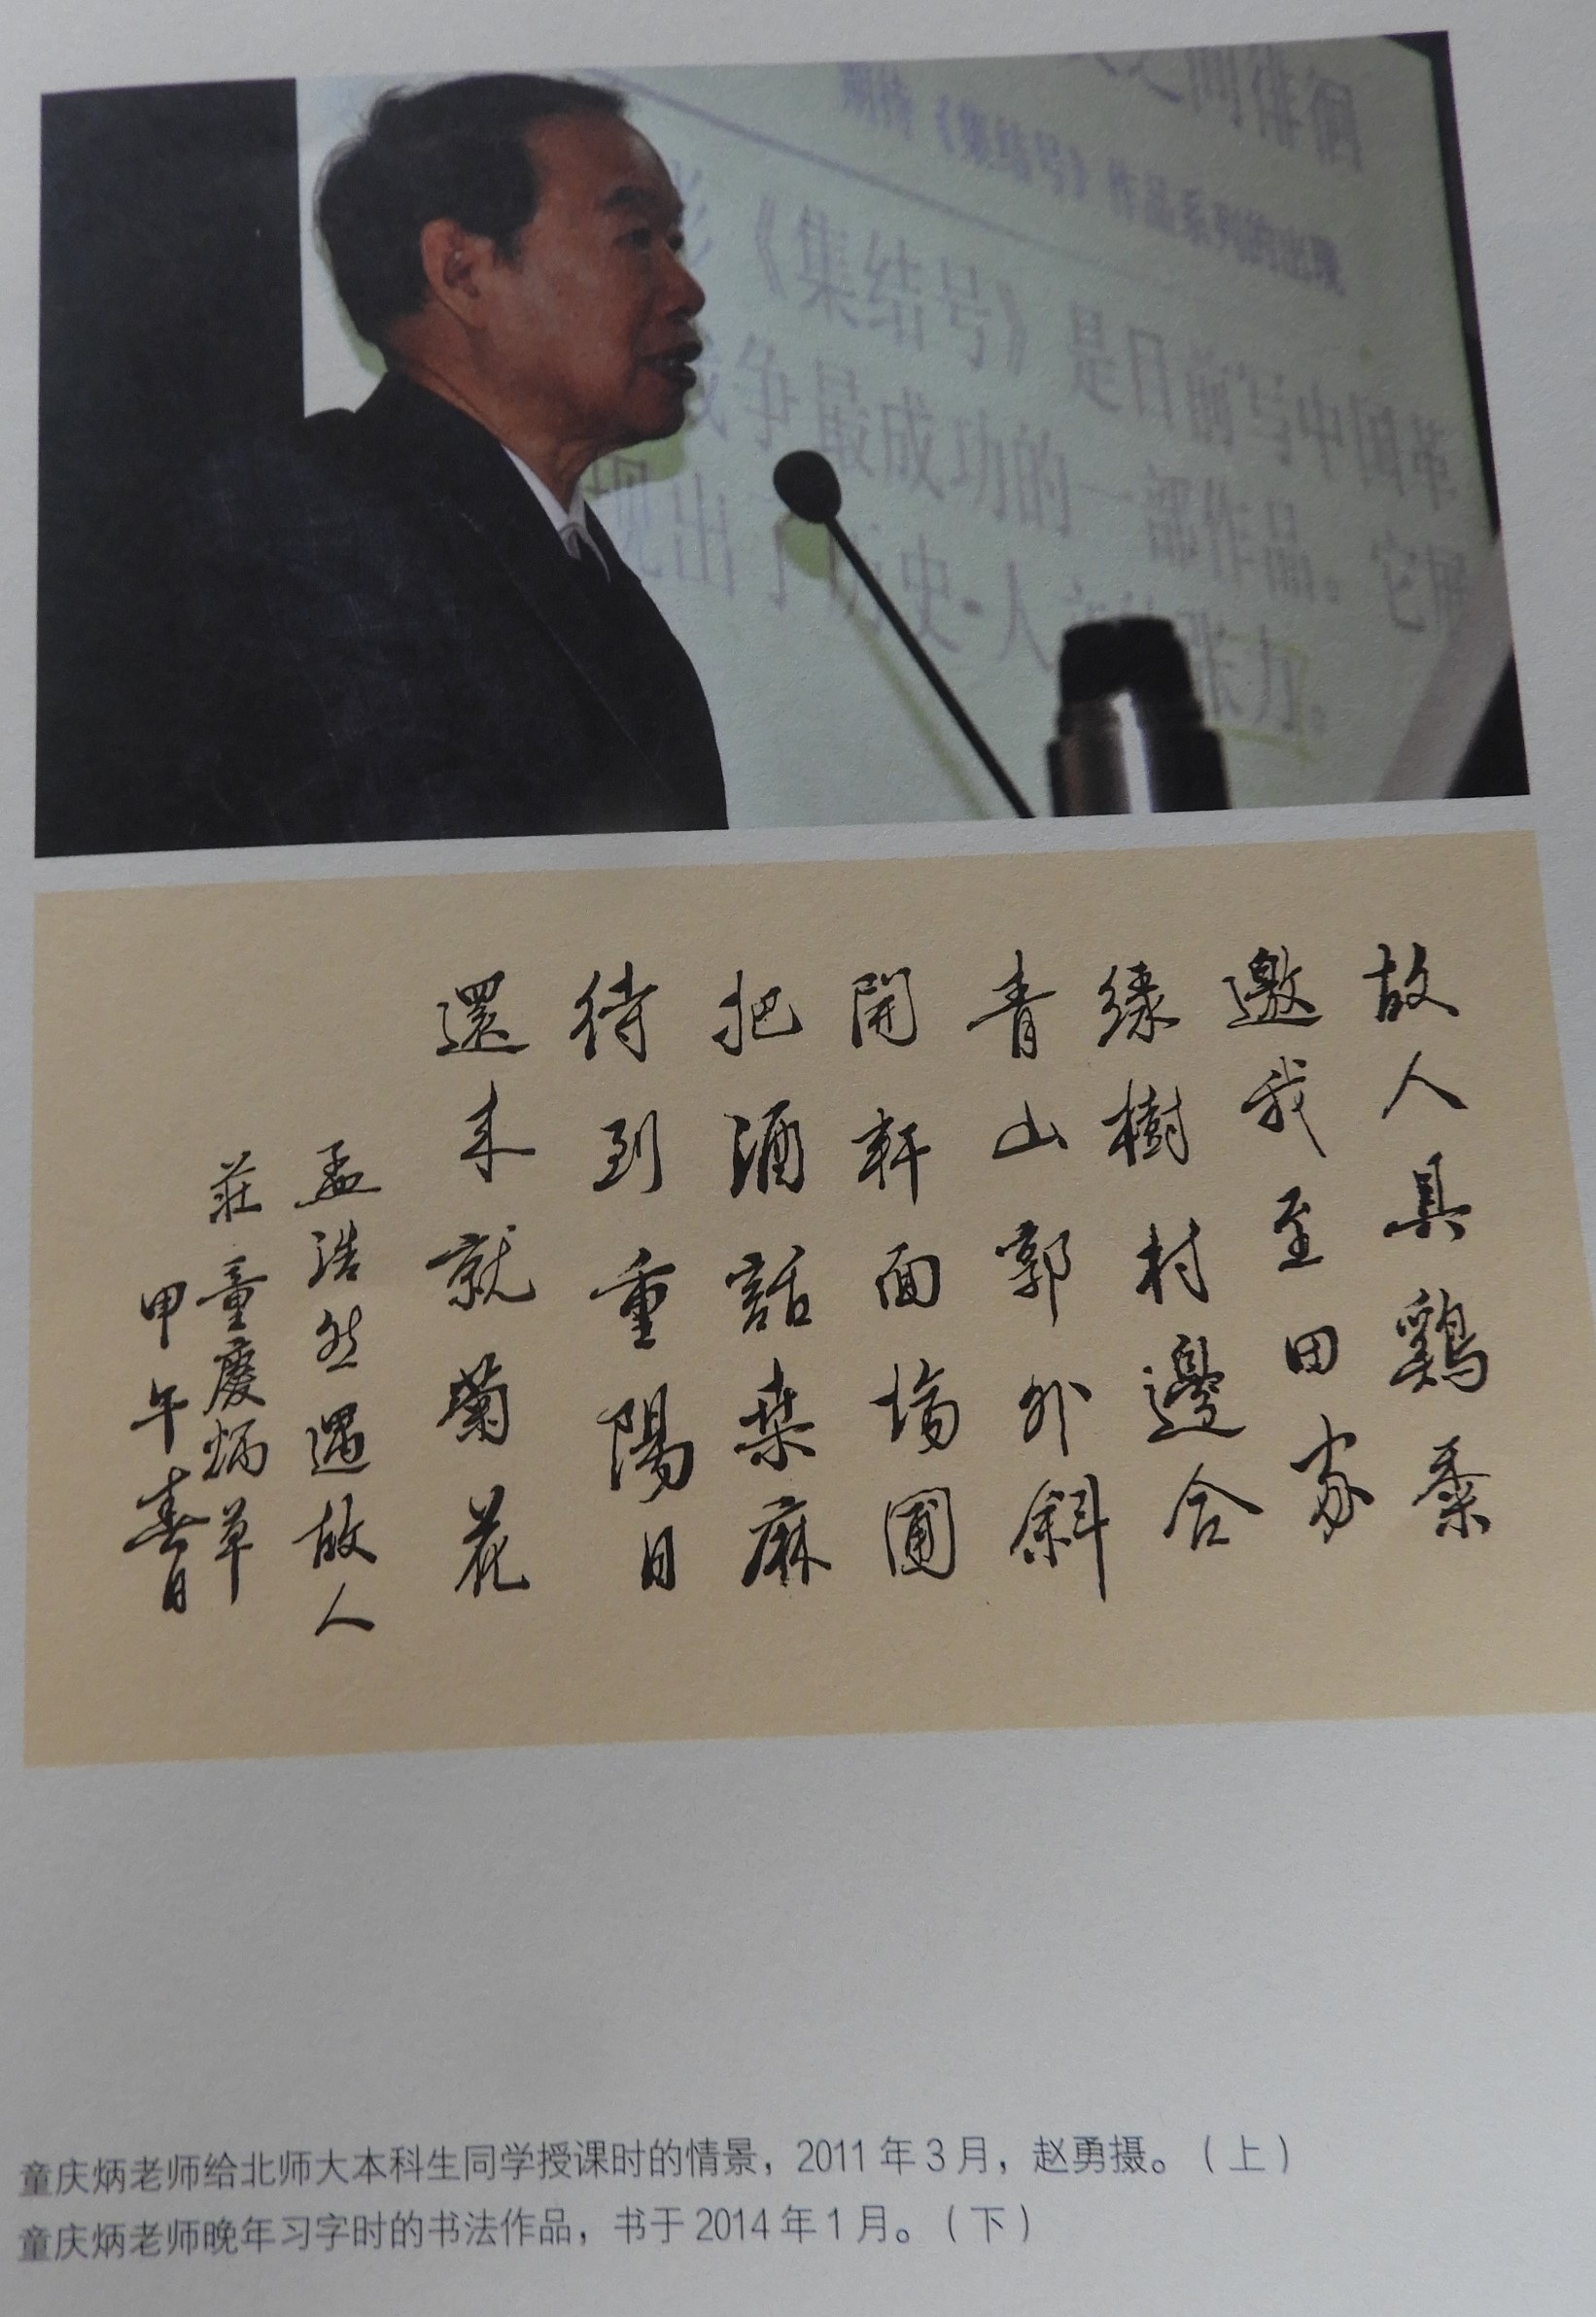 之间徘徊
期待《集结号》作品系列的出现
影《集结号》是目前写中国革
战争最成功的一部作品。它展
现出了历史·人 张力。
故人具鷄黍
邀我至田家
綠樹村邊合
青山郭外斜
開軒面場圃
把酒話桒麻
待到重陽日
還来就菊花
孟浩然過故人
莊 童慶炳草
甲午春日
童庆炳老师给北师大本科生同学授课时的情景，2011 年 3 月，赵勇摄。（上）
童庆炳老师晚年习字时的书法作品，书于 2014 年 1 月。（下）